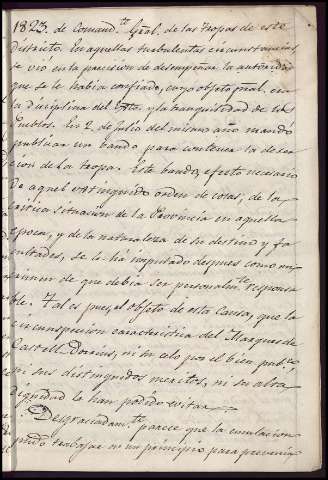 1823. de Comand.te Gral. de las tropas de este
distrito. En aquellas turbulentas circunstancias
se vió en la precision de desempeñar la autoridad
que se le habia confiado, cuyo objeto pral. era
la disciplina del y la tranquilidad de los
Pueblos. En 2 de Julio del mismo año mandó
publicar un bando para contener la deser-
cion de la tropa. Este bando, efecto necesario
de aquel orden de cosas, de la
critica situacion de la Provincia en aquella
epoca, y de la naturaleza de su destino y fa-
cultades, se le ha imputado despues como cri-
minal de que debia ser personalm.te responsa-
ble. Tal es pues, el objeto de esta causa, que la
circunspeccion caracteristica del Marques de
Castell-Dosrius, ni su celo por el bien pub.co,
ni sus distinguidos meritos, ni su alta
dignidad le han podido evitar.
Desgraciadam.te parece que la emulacion
pudo trabajar en un principio para prevenir